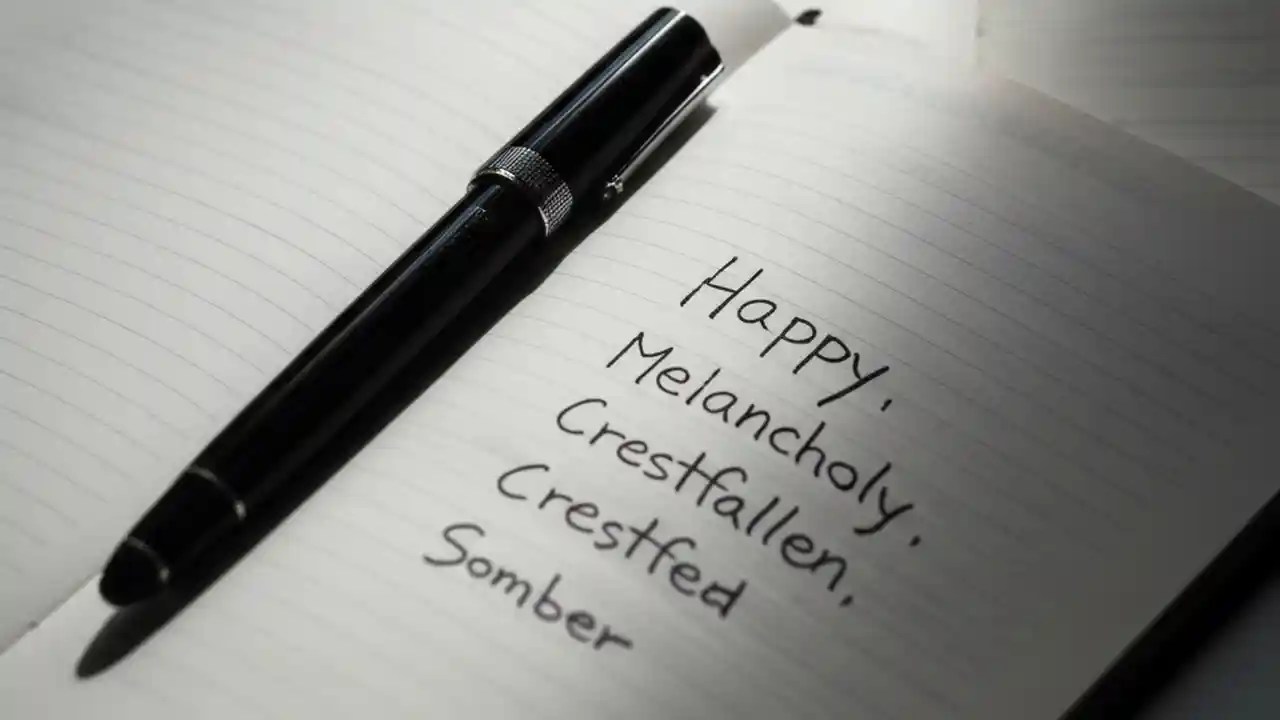 Happy,
Melancholy,
Crestfallen,
Crestfed
Somber